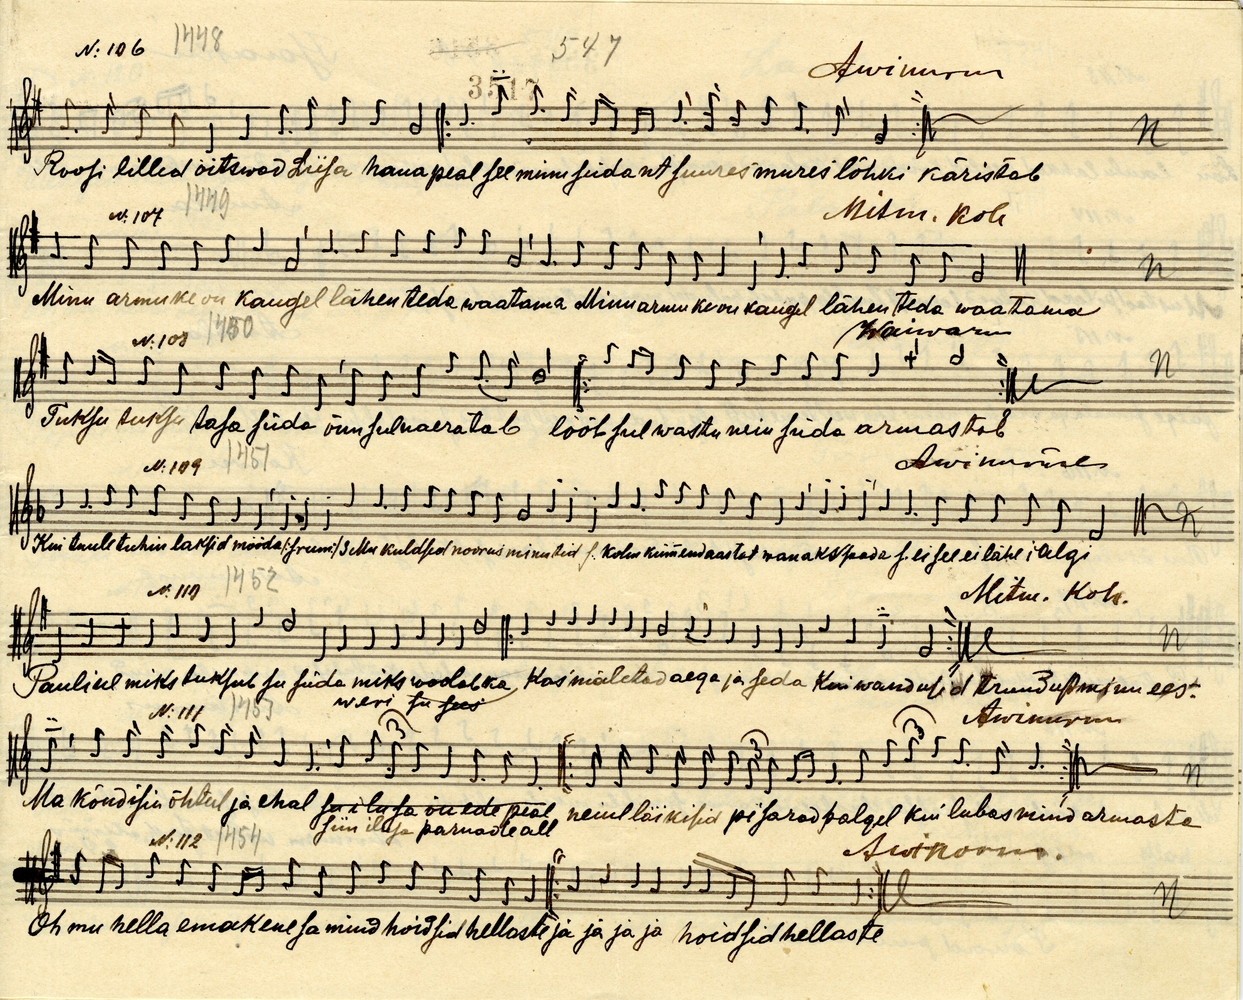 N: 106 1448 3516 547
3517 Awinurm
Roosi lilled õitswad Liisa haua peal see minu südant suures mures lõhki käristab
N: 107 1449 Mihm. Koh
Minu armuke on kaugel lähen teda waatama Minu armuke on kaugel lähen teda waatama
N: 108 1450 Waiwara
Tuksu tuksu tasa süda õnn sul naeratab lööb sul wastu nein süda armastab
N: 109 1451 Awinurme
Kui tuule tuhin laksid mööda mu kuldsed noorus minutid kolm kümmend aastat wanaks saada s. ei see ei lähe i algi
N: 110 1452 Mihm. Koh.
Pauliine miks tuksub su süda miks woolab ka Kas mäletad aega ja seda Kui wandusid truudust minu ees.
weri su sees
N: 111 1453 Awinurm
Ma kõndisin õhtul ja ehal su ilusa õue ede peal neiul läikisid pisarad palgel kui lubas mind armasta
siin ilusa parnade all
N: 112 1454 Awinorm.
Oh mu hella emakene sa mind hoidsid hellaste ja ja ja ja hoidsid hellaste